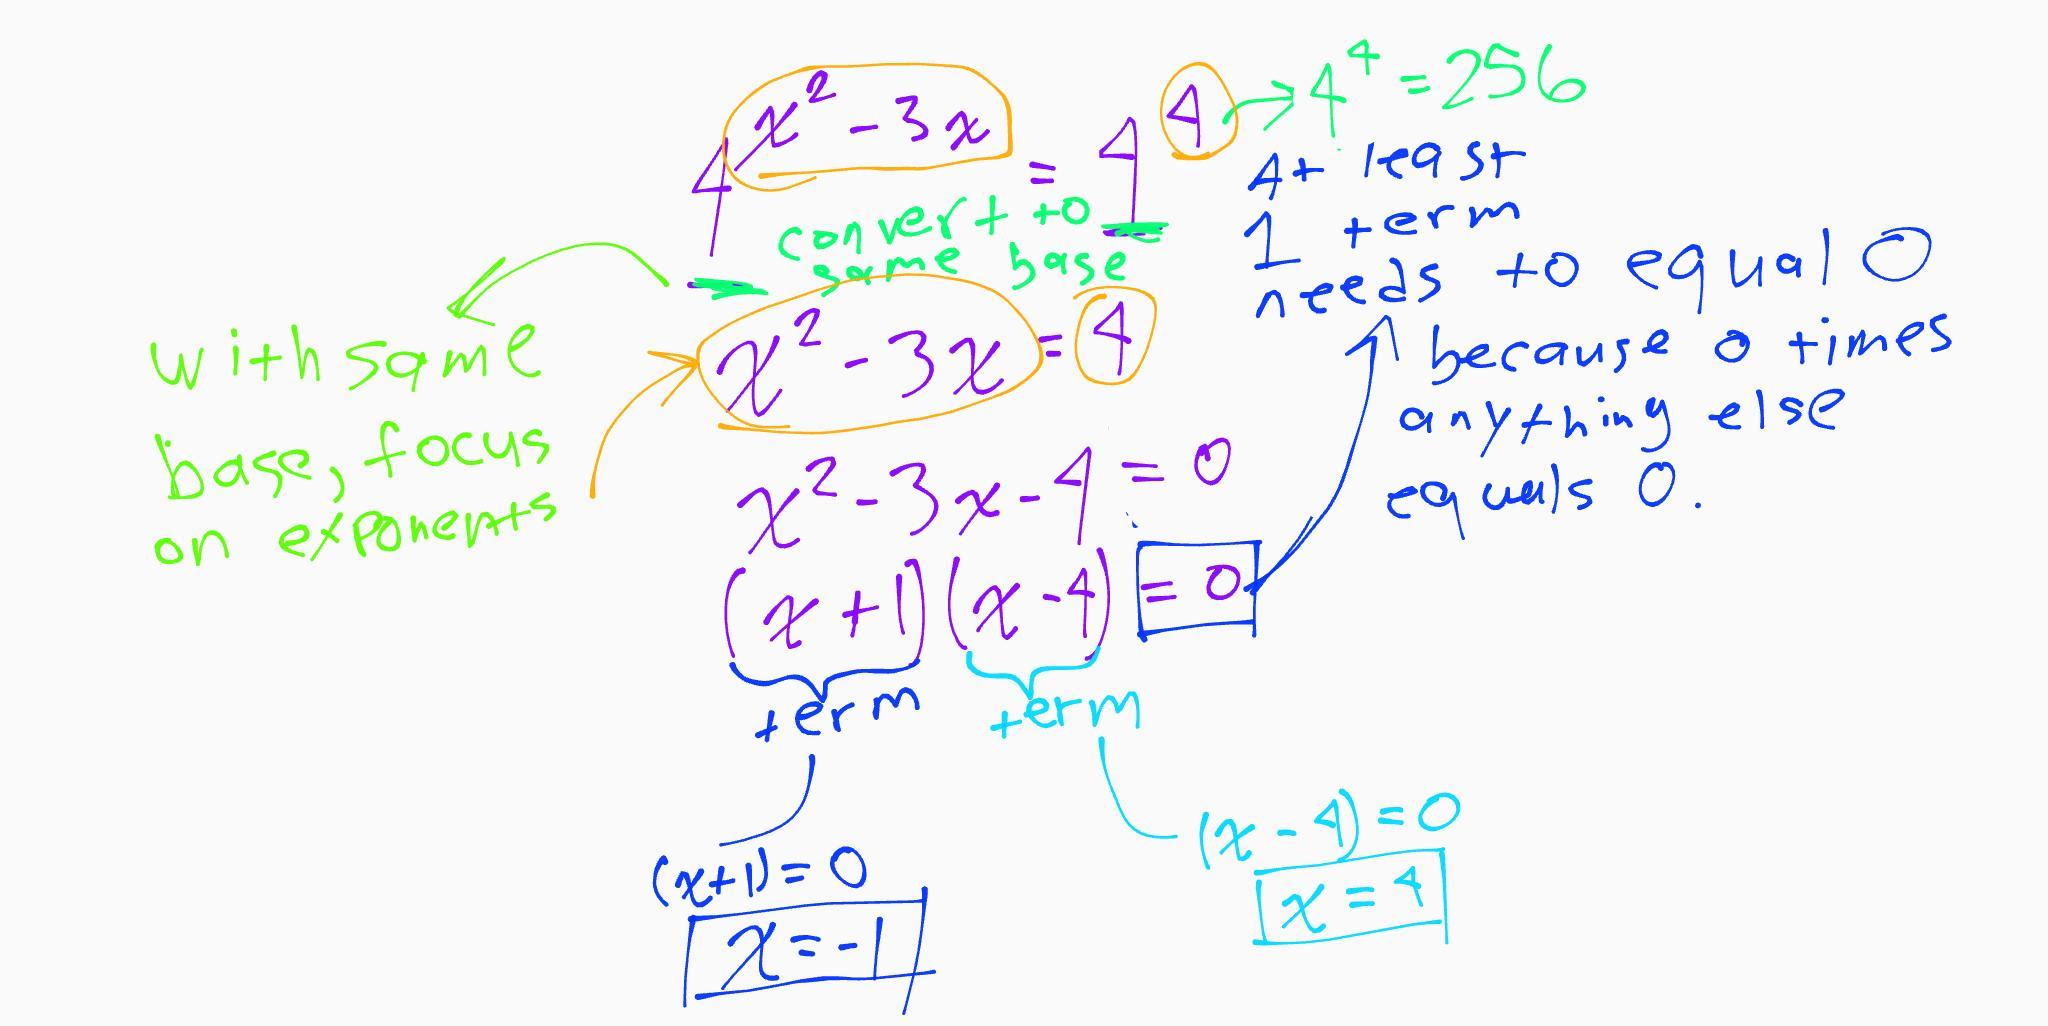 4^(x² - 3x) = 4^4 → 4^4 = 256
convert to
same base
At least
1 term
needs to equal 0
because 0 times
anything else
equals 0.
with same
base, focus
on exponents
x² - 3x = 4
x² - 3x - 4 = 0
(x + 1) (x - 4) = 0
term term
(x+1) = 0
x = -1
(x - 4) = 0
x = 4